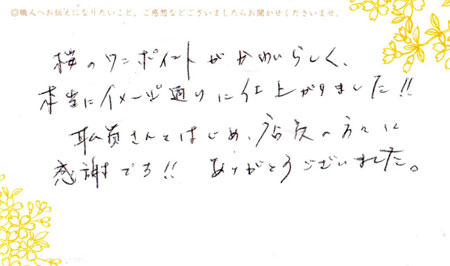 ◎職人へお伝えになりたいこと、ご感想などございましたらお聞かせくださいませ。
桜のワンポイントがかわいらしく、
本当にイメージ通りに仕上がりました!!
職員さんをはじめ、店員の方々に
感謝です!! ありがとうございました。